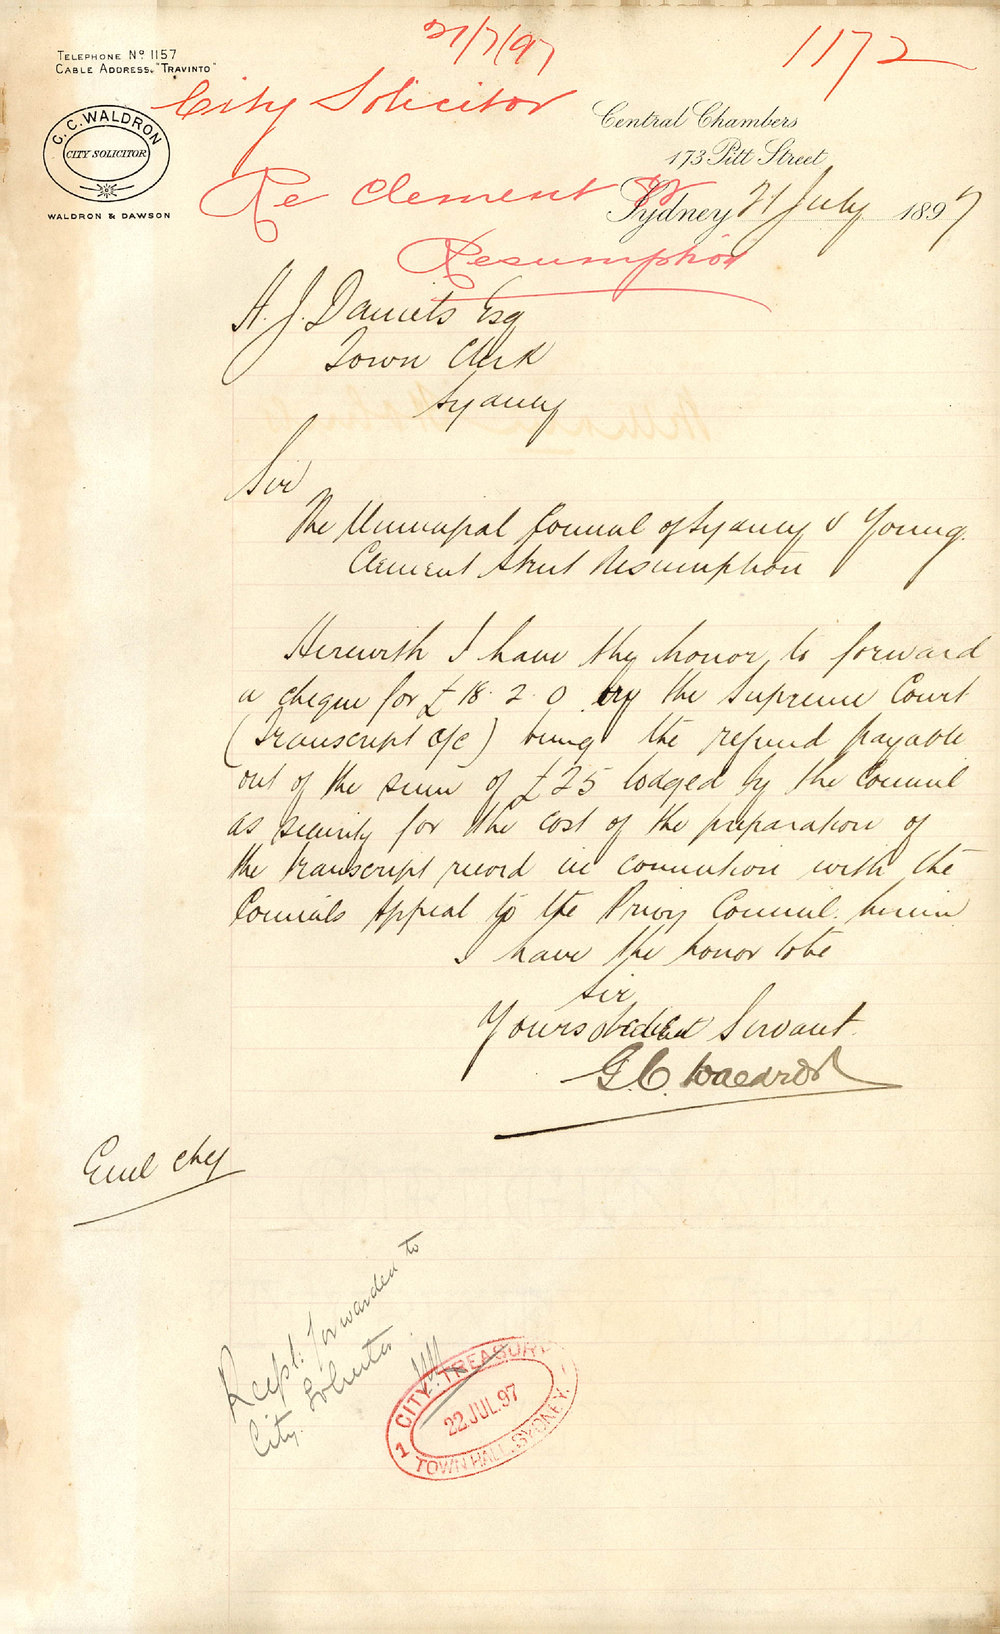 21/7/97
1172
TELEPHONE Nº 1157
CABLE ADDRESS. "TRAVINTO"
City Solicitor
G. C. WALDRON
CITY SOLICITOR
WALDRON & DAWSON
Central Chambers
173 Pitt Street
Re Clement St
Sydney 21 July 1897
Resumption
H. J. Daniels Esq
Town Clerk
Sydney
Sir
The Municipal Council of Sydney v Young.
Clement Street Resumption
Herewith I have the honor, to forward
a cheque for £18. 2. 0 by the Supreme Court
(Transcript a/c) being the refund payable
out of the sum of £25 lodged by the Council
as security for the cost of the preparation of
the transcript record in connection with the
Councils Appeal to the Privy Council. herein
I have the honor to be
Sir
Yours obedient Servant
G. C. Waldron
Encl chq
Recpt. forwarded to
City Solicitor
CITY TREASURY
22 JUL. 97
1 TOWN HALL, SYDNEY.